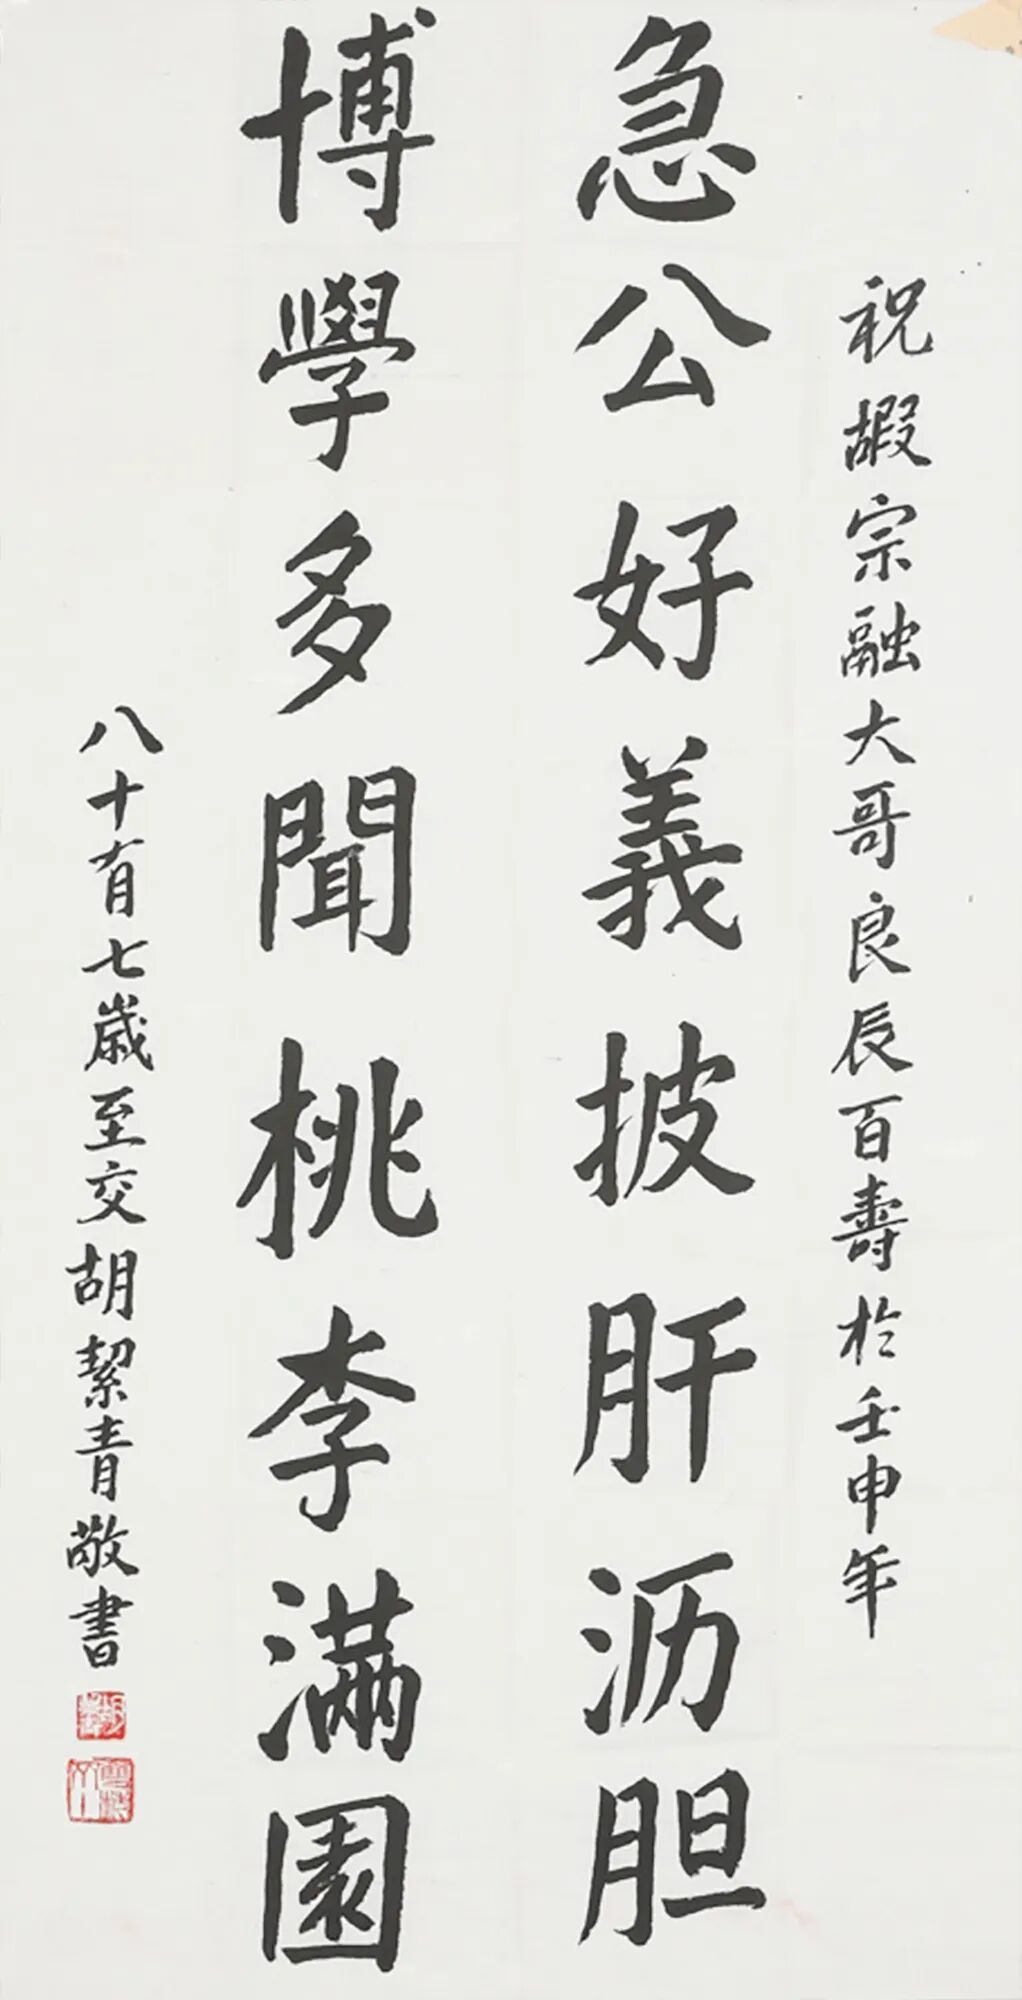 祝嘏宗融大哥良辰百壽於壬申年
急公好義披肝沥胆
博學多聞桃李滿園
八十有七歲至交胡絜青敬書